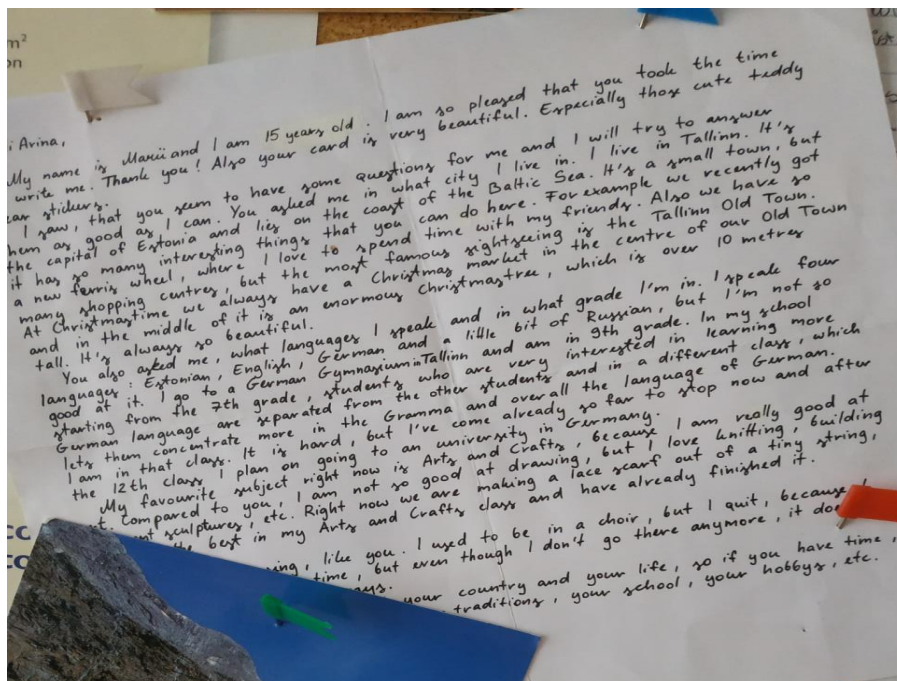 m²
on
i Arina,
My name is Marii and I am 15 years old. I am so pleased that you took the time
write me. Thank you! Also your card is very beautiful. Especially those cute teddy
ear stickers.
I saw, that you seem to have some questions for me and I will try to answer
hem as good as I can. You asked me in what city I live in. I live in Tallinn. It's
the capital of Estonia and lies on the coast of the Baltic Sea. It's a small town, but
it has so many interesting things that you can do here. For example we recently got
a new ferris wheel, where I love to spend time with my friends. Also we have so
many shopping centres, but the most famous sightseeing is the Tallinn Old Town.
At Christmastime we always have a Christmas market in the centre of our Old Town
and in the middle of it is an enormous Christmastree, which is over 10 metres
tall. It's always so beautiful.
You also asked me, what languages I speak and in what grade I'm in. I speak four
languages: Estonian, English, German and a little bit of Russian, but I'm not so
good at it. I go to a German Gymnasium in Tallinn and am in 9th grade. In my school
starting from the 7th grade, students who are very interested in learning more
German language are separated from the other students and in a different class, which
lets them concentrate more in the Gramma and overall the language of German.
I am in that class. It is hard, but I've come already so far to stop now and after
the 12th class I plan on going to an university in Germany.
My favourite subject right now is Arts and Crafts, because I am really good at
t. Compared to you, I am not so good at drawing, but I love knitting, building
sculptures, etc. Right now we are making a lace scarf out of a tiny string,
the best in my Arts and Crafts class and have already finished it.
ing, like you. I used to be in a choir, but I quit, because
time, but even though I don't go there anymore, it doe
ays.
your country and your life, so if you have time,
traditions, your school, your hobbys, etc.